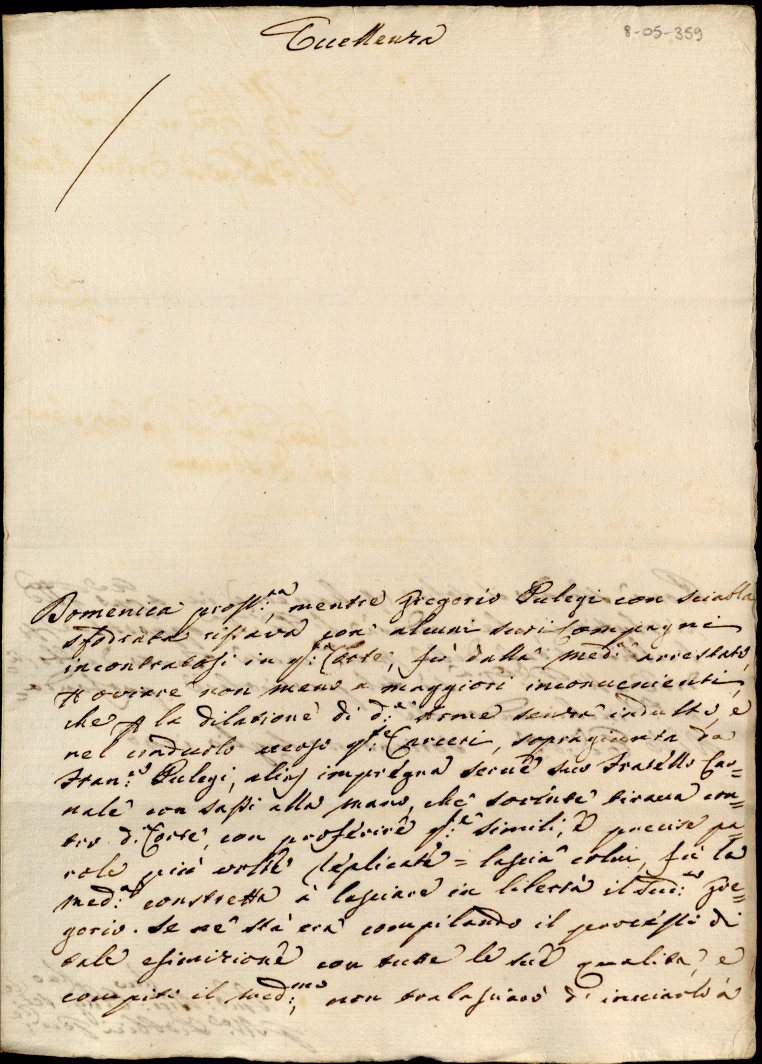 Eccellenza
8-05-359
Domenica pross:ma, mentre Gregorio Pulegi con sciabla
sfodrata rissava con alcuni suoi Compagni
incontratasi in q:ta Corte, fù dalla med:a arrestato,
ovviare non meno a maggiori inconvenienti,
che la dilatione di d:a Arme senza indulto, e
nel condurlo verso q:te Carceri, sopragiunta da
Fran:co Pulegi, alias impregna serve suo fratello Car=
nale con sassi alla mano, che sovente tirava con=
tro d:a Corte, con proferire q:te simili, e precise pa=
role più volte replicate = lascia colui, fù la
med:a constretta à lasciare in libertà il sud:o Gre=
gorio. Se ne stà ora compilando il processo di
tale esimizione con tutte le sue qualità, e
compito il med:mo, non tralasciarò d'inviarlo à